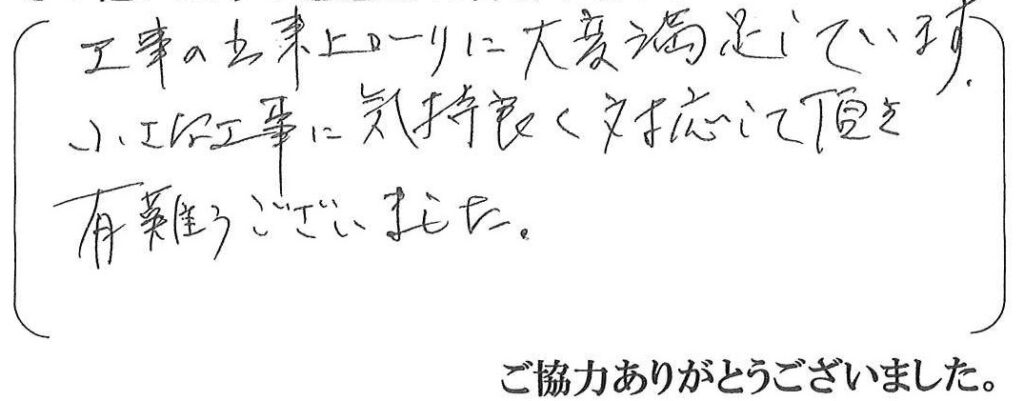 工事の出来上りに大変満足しています。
小さな工事に気持良く対応して頂き
有難うございました。
ご協力ありがとうございました。